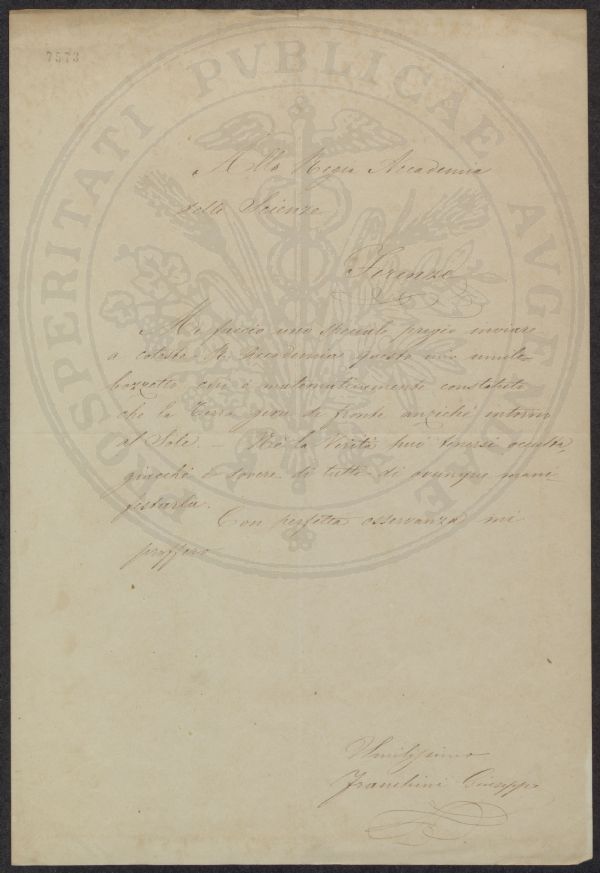 7573
PROSPERITATI PVBLICAE AVGENDAE
Alla Regia Accademia
delle Scienze
Firenze
Mi faccio uno speciale pregio inviare
a cotesta R. Accademia questo mio umile
bozzetto, ove è matematicamente constatato
che la Terra gira di fronte anziché intorno
al Sole. – Né la Verità puoi tenersi occulta,
giacché è dovere di tutti di ovunque mani-
festarla.
Con perfetta osservanza mi
proffero
Umilissimo
Franchini Giuseppe